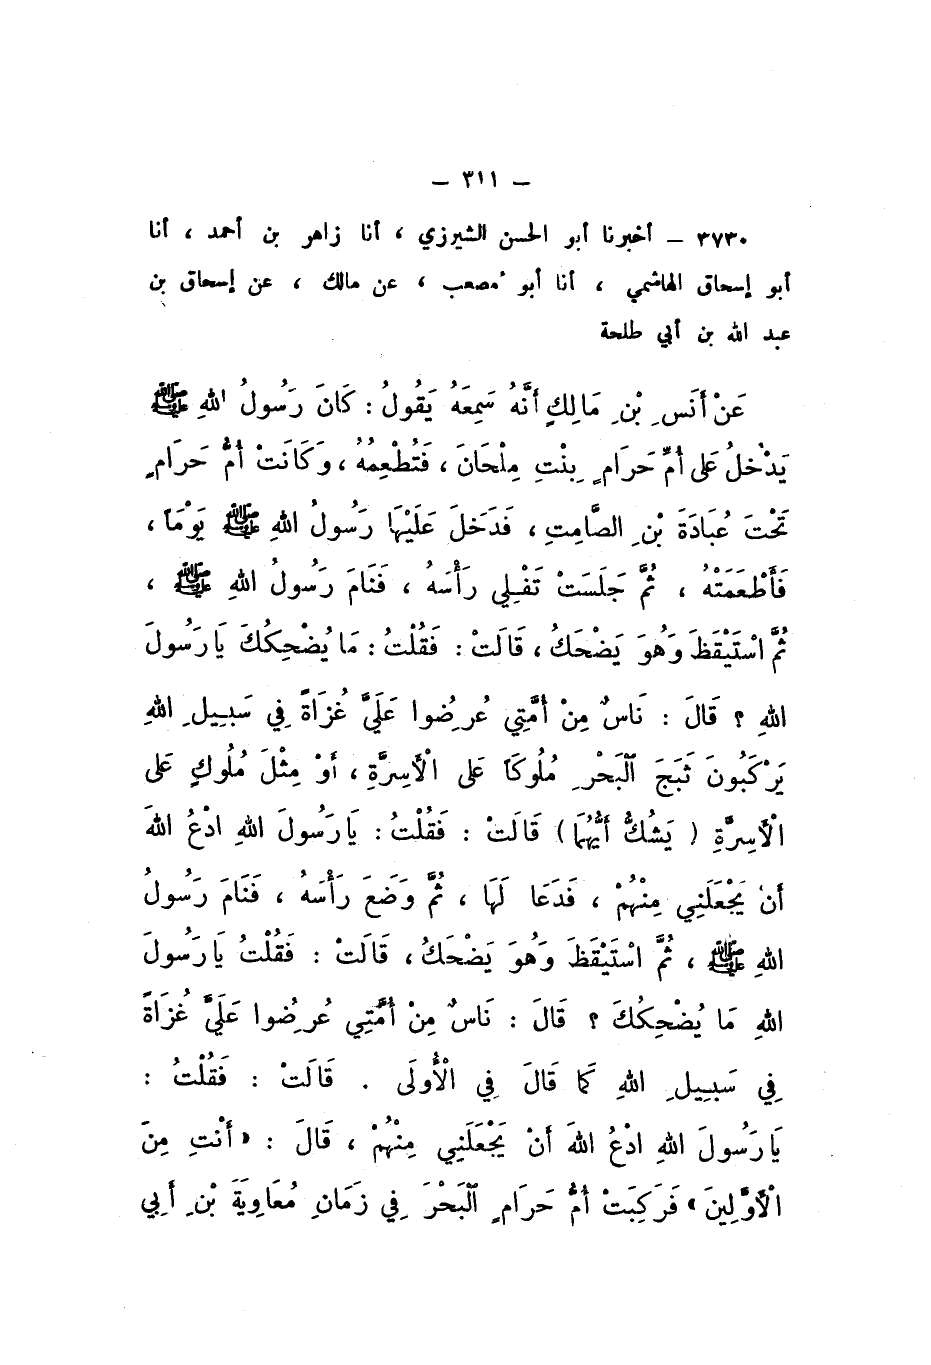 – ٣١١ –
٣٧٣٠ – أخبرنا أبو الحسن الشيرزي ، أنا زاهر بن أحمد ، أنا
أبو إسحاق الهاشمي ، أنا أبو مُصعب ، عن مالك ، عن إسحاق بن
عبد الله بن أبي طلحة
عَنْ أَنَسِ بْنِ مَالِكٍ أَنَّهُ سَمِعَهُ يَقُولُ : كَانَ رَسُولُ اللهِ ﷺ
يَدْخلُ عَلى أُمِّ حَرَامٍ بِنْتِ مِلْحَانَ ، فَتُطْعِمُهُ ، وَكَانَتْ أُمُّ حَرَامٍ
تَحْتَ عُبَادَةَ بْنِ الصَّامِتِ ، فَدَخَلَ عَلَيْهَا رَسُولُ اللهِ ﷺ يَوْمَاً ،
فَأَطْعَمَتْهُ ، ثُمَّ جَلَسَتْ تَفْلِي رَأْسَهُ ، فَنَامَ رَسُولُ اللهِ ﷺ ،
ثُمَّ اسْتَيْقَظَ وَهُوَ يَضْحَكُ ، قَالَتْ : فَقُلْتُ : مَا يُضْحِكُكَ يَا رَسُولَ
اللهِ ؟ قَالَ : نَاسٌ مِنْ أُمَّتِي عُرِضُوا عَلَيَّ غُزَاةً فِي سَبِيلِ اللهِ
يَرْكَبُونَ ثَبَجَ الْبَحْرِ مُلُوكَاً عَلى الْأَسِرَّةِ ، أَوْ مِثْلَ مُلُوكٍ عَلى
الْأَسِرَّةِ ( يَشُكُّ أَيُّهُمَا ) قَالَتْ : فَقُلْتُ : يَا رَسُولَ اللهِ ادْعُ اللهَ
أَنْ يَجْعَلَنِي مِنْهُمْ ، فَدَعَا لَهَا ، ثُمَّ وَضَعَ رَأْسَهُ ، فَنَامَ رَسُولُ
اللهِ ﷺ ، ثُمَّ اسْتَيْقَظَ وَهُوَ يَضْحَكُ ، قَالَتْ : فَقُلْتُ يَا رَسُولَ
اللهِ مَا يُضْحِكُكَ ؟ قَالَ : نَاسٌ مِنْ أُمَّتِي عُرِضُوا عَلَيَّ غُزَاةً
فِي سَبِيلِ اللهِ كَمَا قَالَ فِي الْأُولَى . قَالَتْ : فَقُلْتُ :
يَا رَسُولَ اللهِ ادْعُ اللهَ أَنْ يَجْعَلَنِي مِنْهُمْ ، قَالَ : « أَنْتِ مِنَ
الْأَوَّلِينَ » فَرَكِبَتْ أُمُّ حَرَامٍ الْبَحْرَ فِي زَمَانِ مُعَاوِيَةَ بْنِ أَبِي